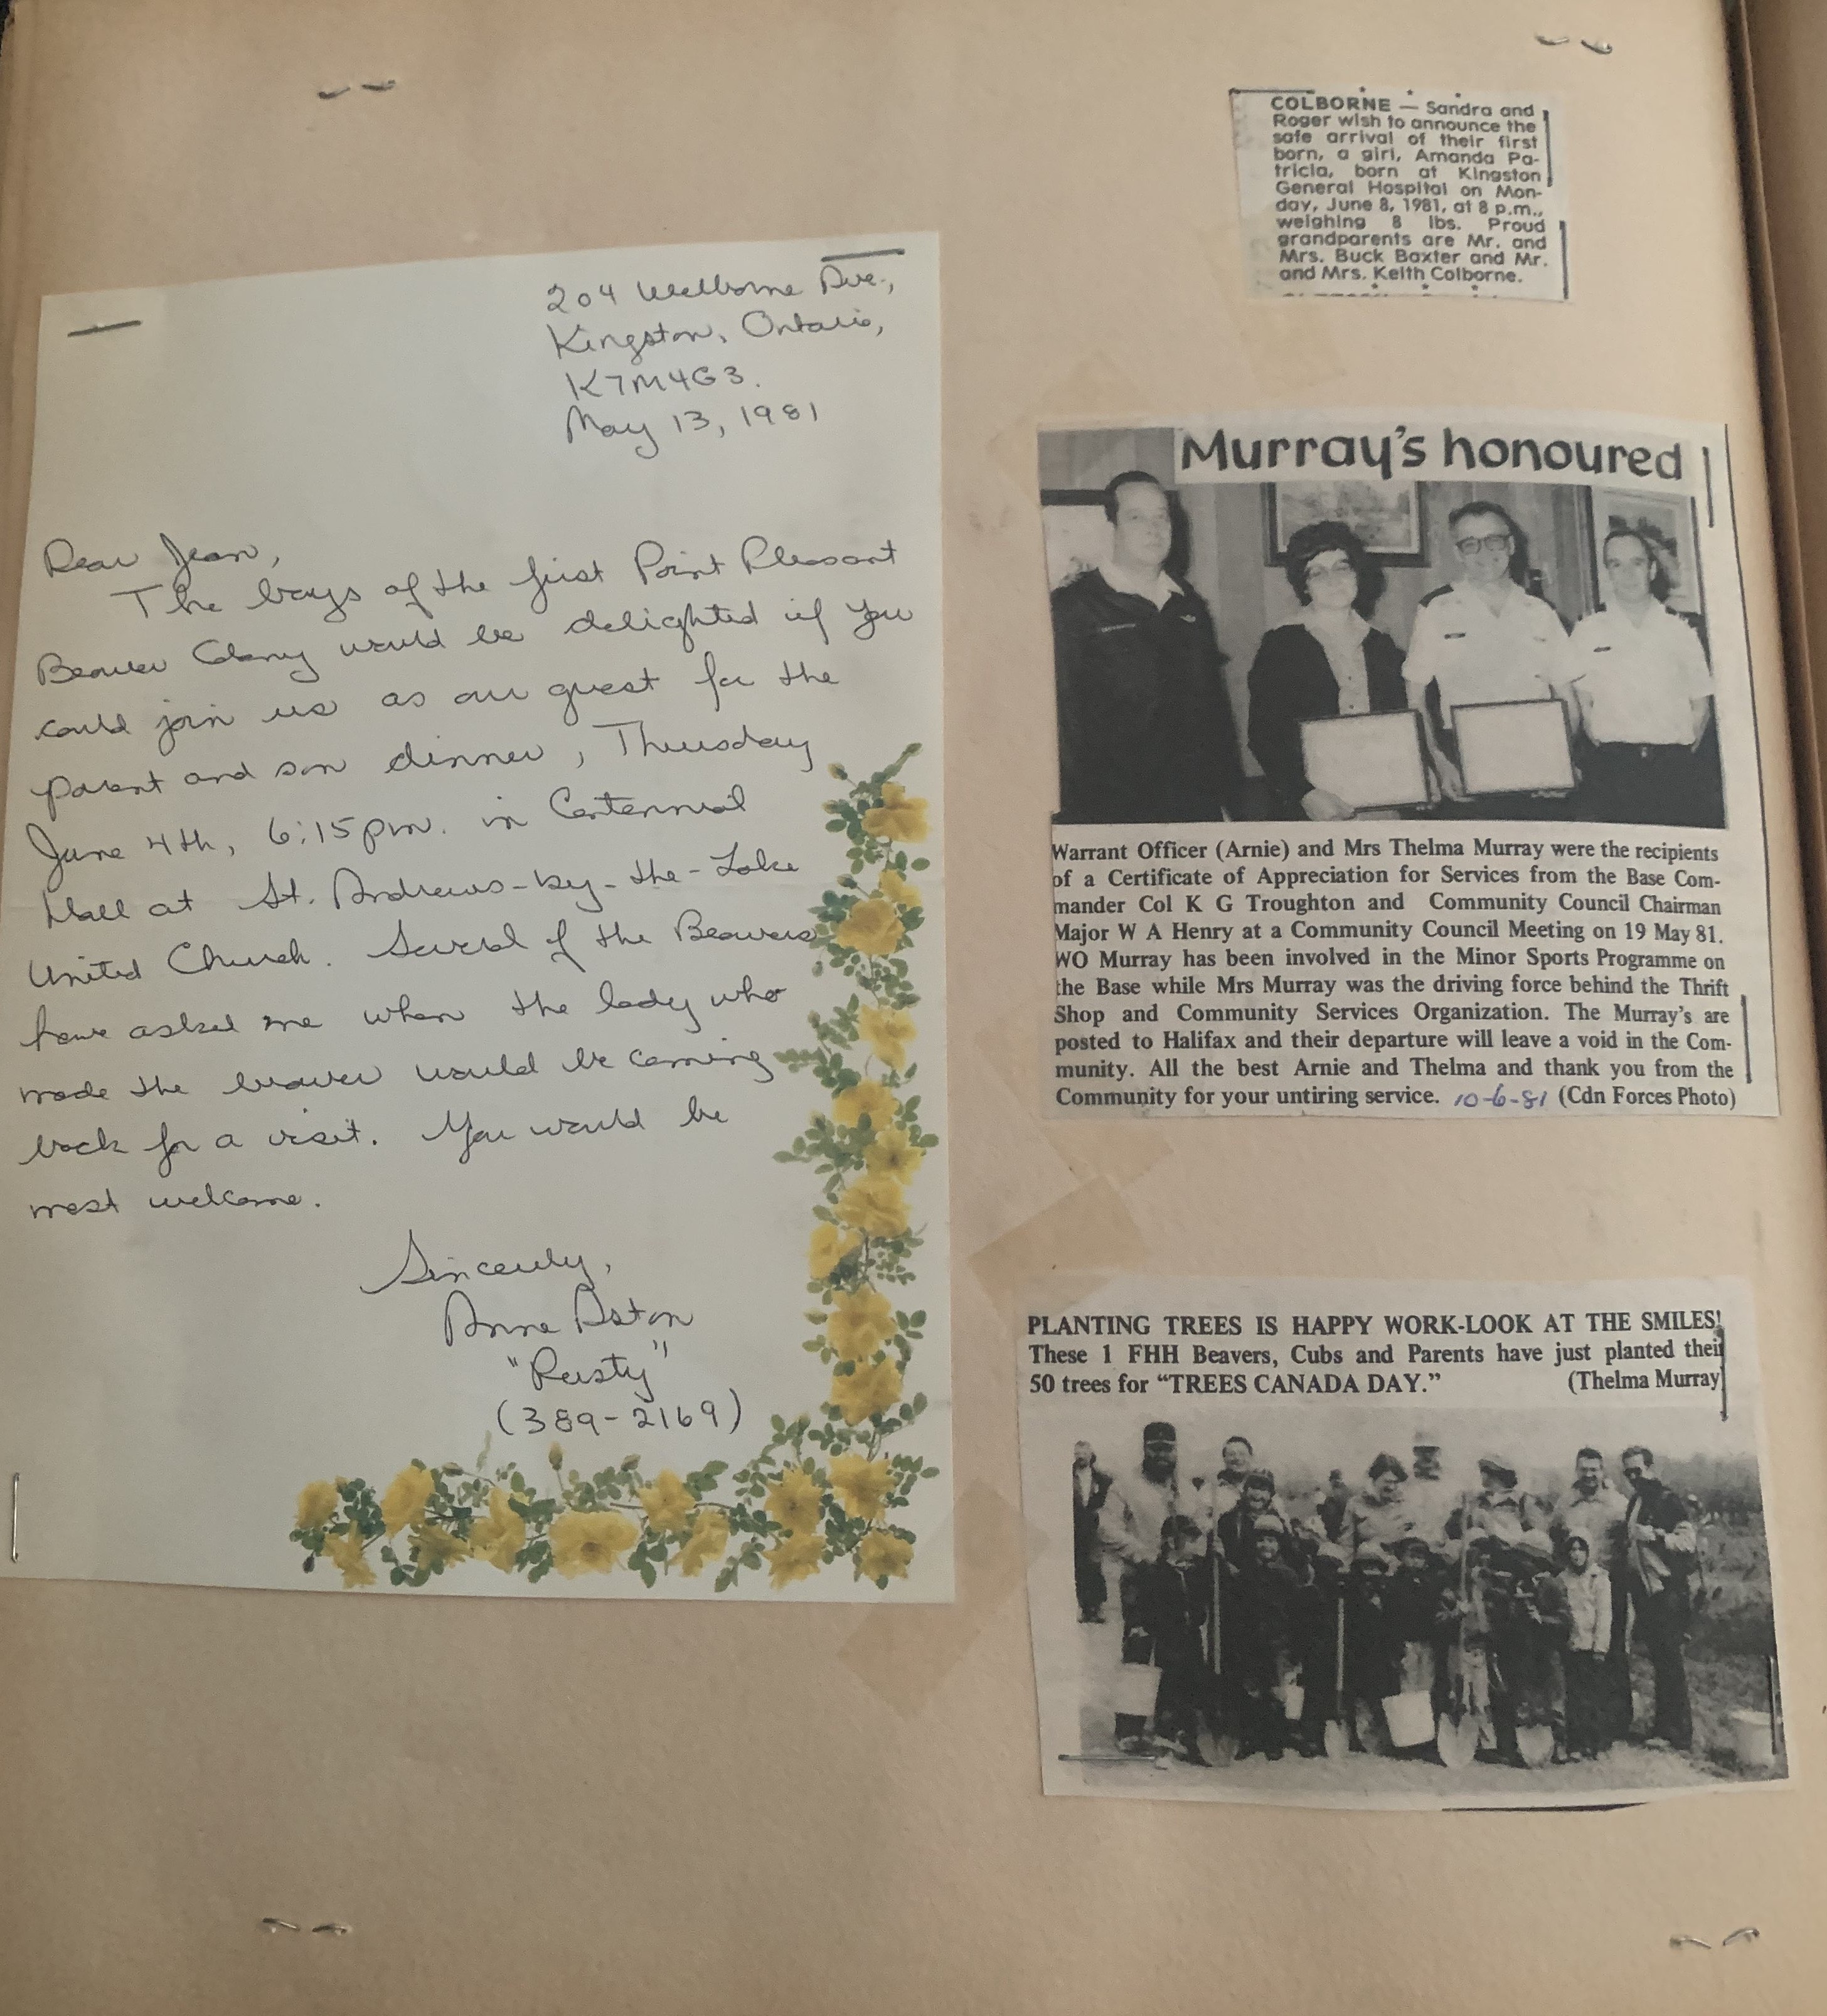 204 Welborne Ave.,
Kingston, Ontario,
K7M4G3.
May 13, 1981
Dear Jean,
The boys of the first Point Pleasant
Beaver Colony would be delighted if you
could join us as our guest for the
parent and son dinner, Thursday
June 4th, 6:15pm. in Centennial
Hall at St. Andrews-by-the-Lake
United Church. Several of the Beavers
have asked me when the lady who
made the beaver would be coming
back for a visit. You would be
most welcome.
Sincerely,
Anne Aston
"Rusty"
(389-2169)
COLBORNE — Sandra and
Roger wish to announce the
safe arrival of their first
born, a girl, Amanda Pa-
tricia, born at Kingston
General Hospital on Mon-
day, June 8, 1981, at 8 p.m.,
weighing 8 lbs. Proud
grandparents are Mr. and
Mrs. Buck Baxter and Mr.
and Mrs. Keith Colborne.
Murray's honoured
Warrant Officer (Arnie) and Mrs Thelma Murray were the recipients
of a Certificate of Appreciation for Services from the Base Com-
mander Col K G Troughton and Community Council Chairman
Major W A Henry at a Community Council Meeting on 19 May 81.
WO Murray has been involved in the Minor Sports Programme on
the Base while Mrs Murray was the driving force behind the Thrift
Shop and Community Services Organization. The Murray's are
posted to Halifax and their departure will leave a void in the Com-
munity. All the best Arnie and Thelma and thank you from the
Community for your untiring service. 10-6-81 (Cdn Forces Photo)
PLANTING TREES IS HAPPY WORK-LOOK AT THE SMILES!
These 1 FHH Beavers, Cubs and Parents have just planted their
50 trees for “TREES CANADA DAY.” (Thelma Murray